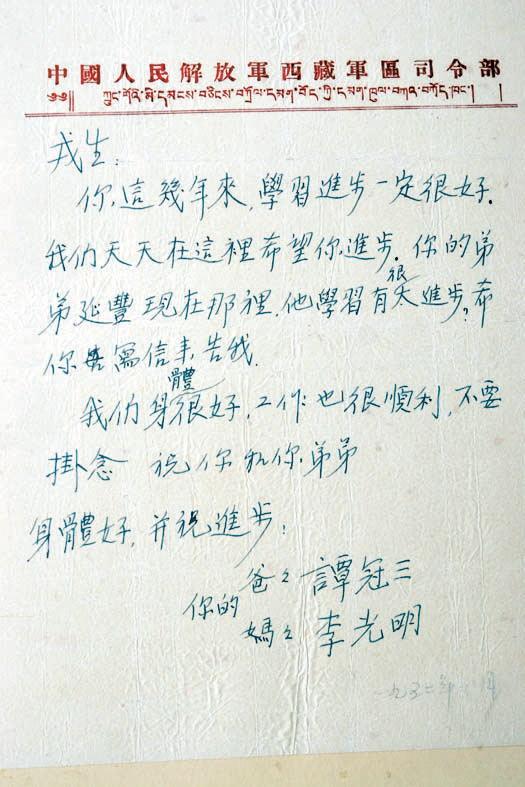 中國人民解放軍西藏軍區司令部
༄༅།། ཀྲུང་གོའི་མི་དམངས་བཅིངས་བཀྲོལ་དམག་བོད་ཀྱི་དམག་ཁུལ་བཀའ་བཀོད་ཁང་།
戎生：
你這幾年來，學習進步一定很好．
我们天天在這裡希望你進步．你的弟
弟延豐現在那裡．他學習有很大進步？希
你寫信來告我．
我们身體很好，工作也很順利，不要
掛念 祝你和你弟弟
身體好，并祝進步；
你的
爸々 譚冠三
媽々 李光明
一九五二年 月